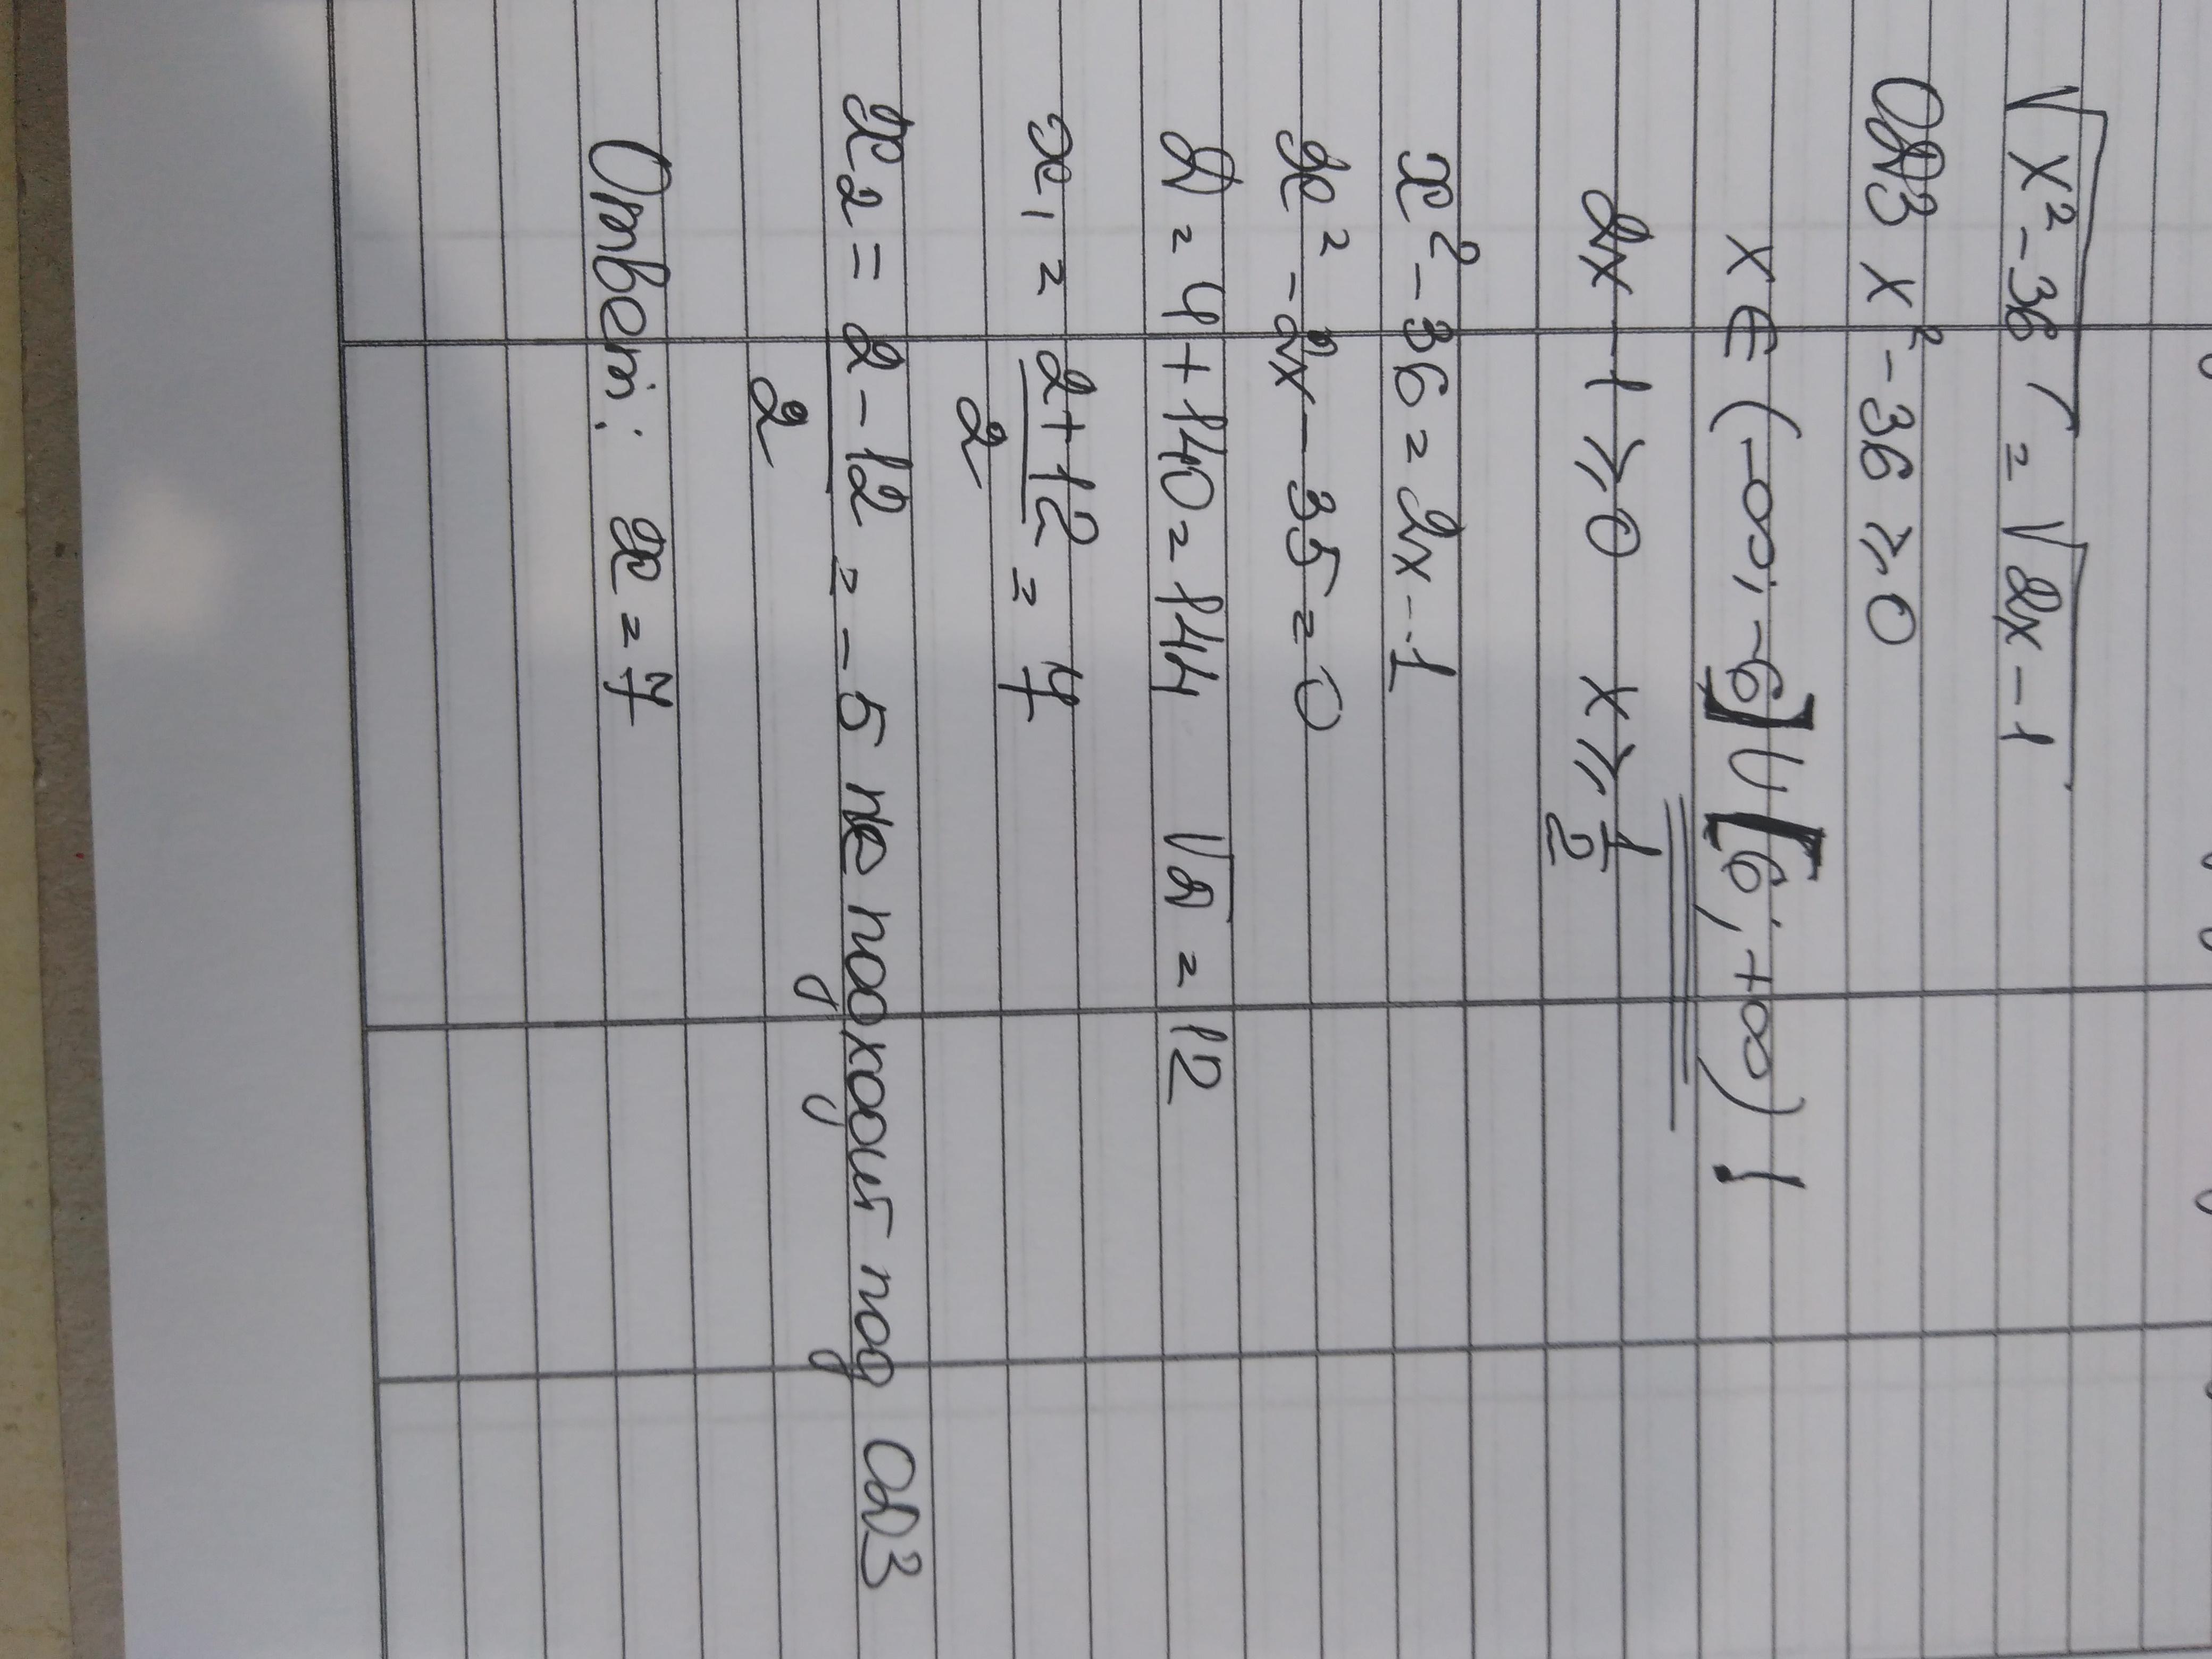 √x²-36 = √2x-1
ОДЗ x²-36 ⩾ 0
x ∈ (-∞; -6] U [6; +∞)
2x-1 ⩾ 0 x ⩾ 1/2
x²-36 = 2x-1
x²-2x-35=0
D = 4+140=144 √D = 12
x1 = 2+12/2 = 7
x2 = 2-12/2 = -5 не подходит под ОДЗ
Ответ: x = 7